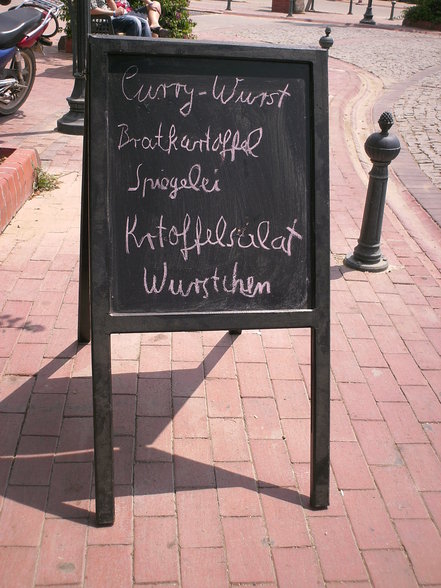 Curry-Wurst
Bratkartoffel
Spiegelei
Krtoffelsalat
Würstchen